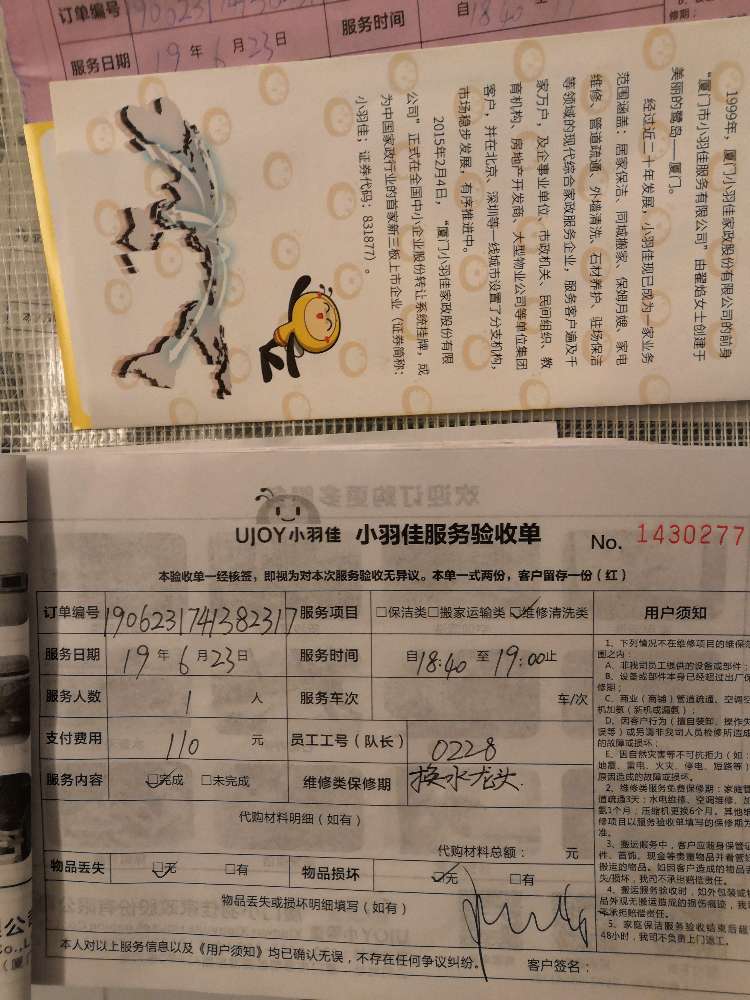 订单编号
服务时间 自18:40
服务日期 19年6月23日
1999年，厦门小羽佳家政股份有限公司的前身
“厦门市小羽佳服务有限公司”由翟焰女士创建于
美丽的鹭岛——厦门。
经过近二十年发展，小羽佳现已成为一家业务
范围涵盖：居家保洁、同城搬家、保姆月嫂、家电
维修、管道疏通、外墙清洗、石材养护、驻场保洁
等领域的现代综合家政服务企业，服务客户遍及千
家万户，及企事业单位、市政机关、民间组织、教
育机构、房地产开发商、大型物业公司等单位集团
客户，并在北京、深圳等一线城市设置了分支机构，
市场稳步发展，有序推进中。
2015年2月4日，“厦门小羽佳家政股份有限
公司”正式在全国中小企业股份转让系统挂牌，成
为中国家政行业的首家新三板上市企业（证券简称：
小羽佳；证券代码：831877）。
UJOY小羽佳 小羽佳服务验收单 No. 1430277
本验收单一经核签，即视为对本次服务验收无异议。本单一式两份，客户留存一份（红）
订单编号 1906231741382317 服务项目 □保洁类□搬家运输类☑维修清洗类 用户须知
服务日期 19年6月23日 服务时间 自18:40至19:00止
服务人数 1人 服务车次 车/次
支付费用 110元 员工工号（队长） 0228
服务内容 ☑完成 □未完成 维修类保修期 换水龙头
代购材料明细（如有）
代购材料总额： 元
物品丢失 ☑无 □有 物品损坏 ☑无 □有
物品丢失或损坏明细填写（如有）
本人对以上服务信息以及《用户须知》均已确认无误，不存在任何争议纠纷。 客户签名：
1、下列情况不在维修项目的维保范
围之内：
A、非我司员工提供的设备或部件；
B、设备或部件本身已经超过出厂保
修期；
C、商业（商铺）管道疏通、空调空
机加氨（新机或漏氨）；
D、因客户行为（擅自装卸、操作失
误等）或另请非我司人员检修所造成
的故障或损坏；
E、因自然灾害等不可抗拒力（如：
地震、雷电、火灾、停电、短路等）
原因造成的故障或损坏。
2、维修类服务免费保修期：家庭管
道疏通3天；水电维修、空调维修、加
氨1个月；压缩机更换6个月。其他维
修项目以服务验收单填写的保修期为
准。
3、搬运服务中，客户应随身保管证
件、首饰、现金等贵重物品并看管好
搬运的物品。如因客户造成的物品丢
失/损坏，我司不承担赔偿责任。
4、搬运服务验收时，如外包装或物
品外观无搬运造成的损伤痕迹，我司
不承担赔偿责任。
5、家庭保洁服务验收结束后超
48小时，我司不负责上门返工。